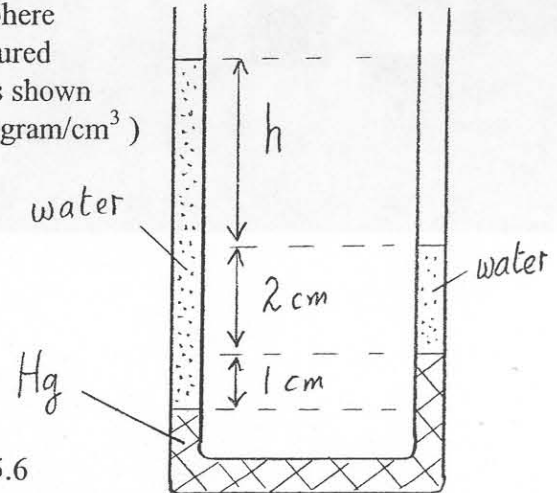 here
ured
s shown
gram/cm³ )
h
water
water
2 cm
1 cm
Hg
5.6